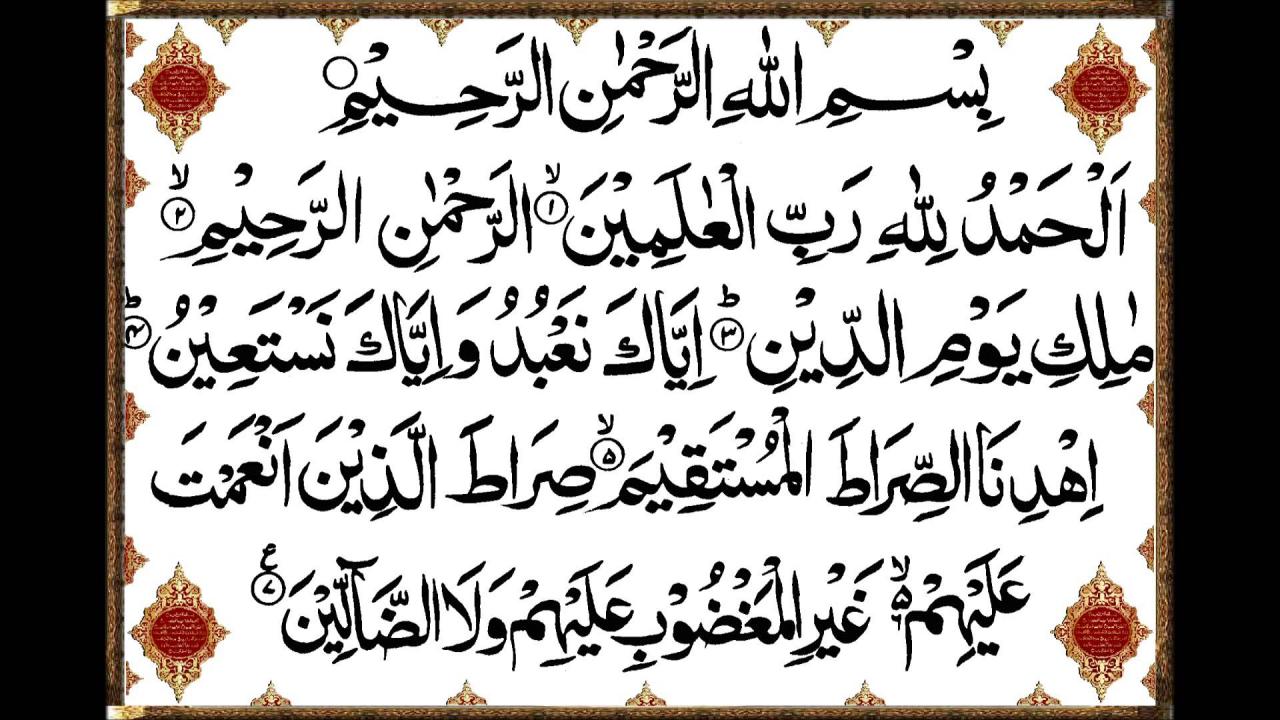 بِسْمِ اللّٰهِ الرَّحْمٰنِ الرَّحِيْمِ ○
اَلْحَمْدُ لِلّٰهِ رَبِّ الْعٰلَمِيْنَ ۙ۱ الرَّحْمٰنِ الرَّحِيْمِ ۙ۲
مٰلِكِ يَوْمِ الدِّيْنِ ؕ۳ اِيَّاكَ نَعْبُدُ وَ اِيَّاكَ نَسْتَعِيْنُ ؕ۴
اِهْدِنَا الصِّرَاطَ الْمُسْتَقِيْمَ ۙ۵ صِرَاطَ الَّذِيْنَ اَنْعَمْتَ
عَلَيْهِمْ ۙ۵ غَيْرِ الْمَغْضُوْبِ عَلَيْهِمْ وَلَا الضَّآلِّيْنَ ۷ ع